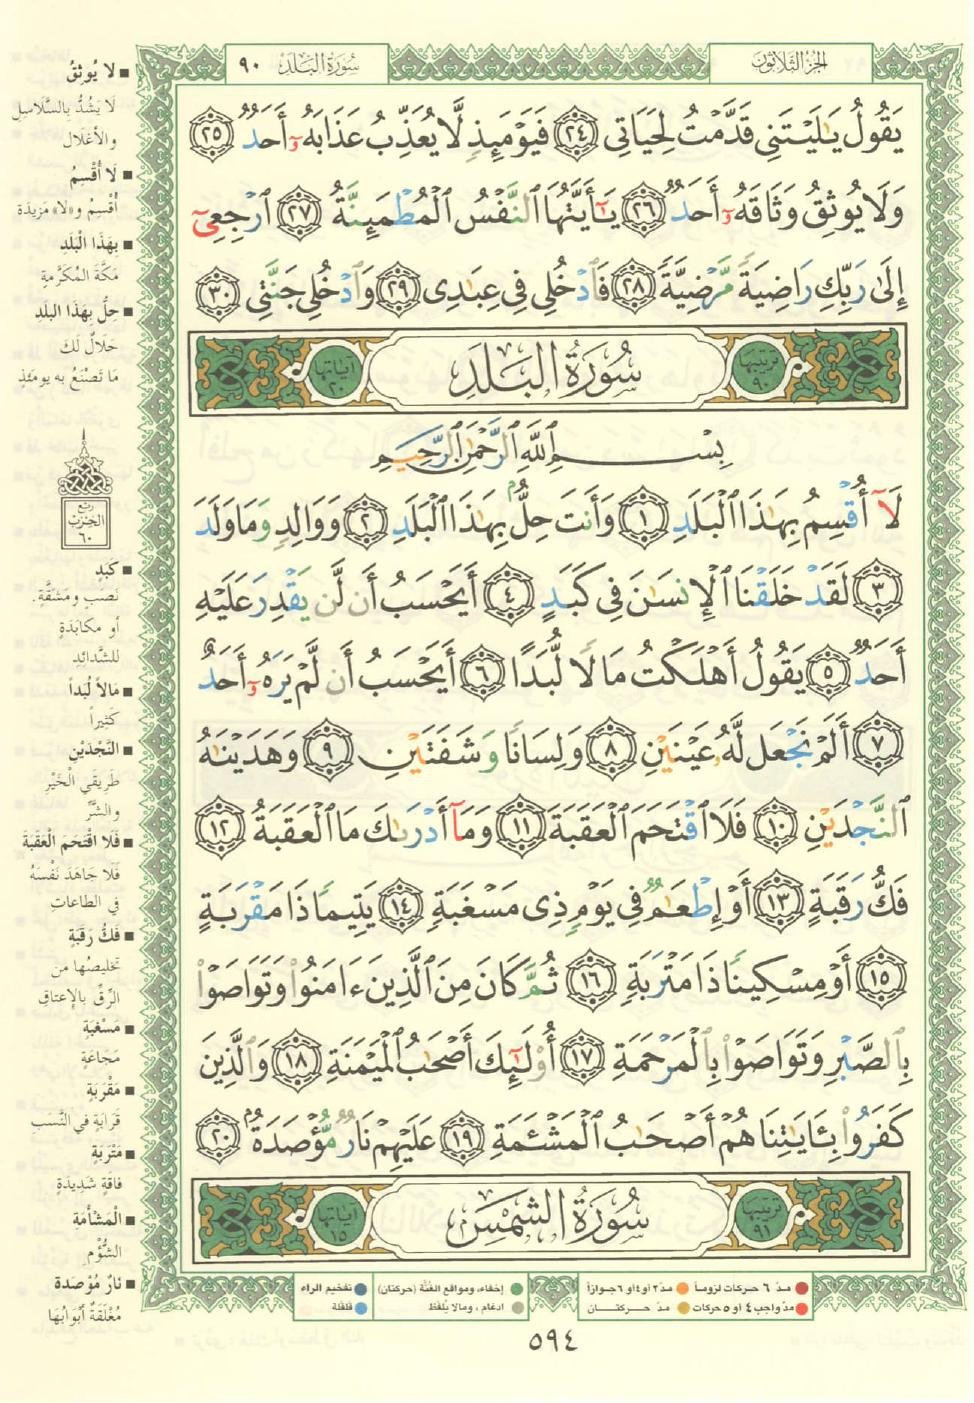 سورة البلد ٩٠
الجزء الثلاثون
يَقُولُ يَـٰلَيْتَنِى قَدَّمْتُ لِحَيَاتِى ٢٤ فَيَوْمَئِذٍ لَّا يُعَذِّبُ عَذَابَهُۥٓ أَحَدٌ ٢٥
وَلَا يُوثِقُ وَثَاقَهُۥٓ أَحَدٌ ٢٦ يَـٰٓأَيَّتُهَا ٱلنَّفْسُ ٱلْمُطْمَئِنَّةُ ٢٧ ٱرْجِعِىٓ
إِلَىٰ رَبِّكِ رَاضِيَةً مَّرْضِيَّةً ٢٨ فَٱدْخُلِى فِى عِبَـٰدِى ٢٩ وَٱدْخُلِى جَنَّتِى ٣٠
ترتيبها ٩٠ سُورَةُ البَلَدِ آياتها ٢٠
بِسْمِ ٱللَّهِ ٱلرَّحْمَـٰنِ ٱلرَّحِيمِ
لَآ أُقْسِمُ بِهَـٰذَا ٱلْبَلَدِ ١ وَأَنتَ حِلٌّۢ بِهَـٰذَا ٱلْبَلَدِ ٢ وَوَالِدٍ وَمَا وَلَدَ
٣ لَقَدْ خَلَقْنَا ٱلْإِنسَـٰنَ فِى كَبَدٍ ٤ أَيَحْسَبُ أَن لَّن يَقْدِرَ عَلَيْهِ
أَحَدٌ ٥ يَقُولُ أَهْلَكْتُ مَالًا لُّبَدًا ٦ أَيَحْسَبُ أَن لَّمْ يَرَهُۥٓ أَحَدٌ
٧ أَلَمْ نَجْعَل لَّهُۥ عَيْنَيْنِ ٨ وَلِسَانًا وَشَفَتَيْنِ ٩ وَهَدَيْنَـٰهُ
ٱلنَّجْدَيْنِ ١٠ فَلَا ٱقْتَحَمَ ٱلْعَقَبَةَ ١١ وَمَآ أَدْرَىٰكَ مَا ٱلْعَقَبَةُ ١٢
فَكُّ رَقَبَةٍ ١٣ أَوْ إِطْعَـٰمٌ فِى يَوْمٍ ذِى مَسْغَبَةٍ ١٤ يَتِيمًا ذَا مَقْرَبَةٍ
١٥ أَوْ مِسْكِينًا ذَا مَتْرَبَةٍ ١٦ ثُمَّ كَانَ مِنَ ٱلَّذِينَ ءَامَنُوا۟ وَتَوَاصَوْا۟
بِٱلصَّبْرِ وَتَوَاصَوْا۟ بِٱلْمَرْحَمَةِ ١٧ أُو۟لَـٰٓئِكَ أَصْحَـٰبُ ٱلْمَيْمَنَةِ ١٨ وَٱلَّذِينَ
كَفَرُوا۟ بِـَٔايَـٰتِنَا هُمْ أَصْحَـٰبُ ٱلْمَشْـَٔمَةِ ١٩ عَلَيْهِمْ نَارٌ مُّؤْصَدَةٌۢ ٢٠
ترتيبها ٩١ سُورَةُ الشَّمْسِ آياتها ١٥
لا يُوثِقُ
لَا يَشُدُّ بِالسَّلَاسِلِ
والأَغْلَالِ
لَا أُقْسِمُ
أُقْسِمُ و«لا» مَزِيدَة
بِهَذَا الْبَلَدِ
مَكَّةَ الْمُكَرَّمةِ
حِلٌّ بِهَذا البلَدِ
حَلَالٌ لَكَ
مَا تَصْنَعُ به يومئذٍ
ربع الحزب ٦٠
كَبَدٍ
نَصَبٍ ومَشَقَّة.
أو مكابَدَةٍ
للشَّدائِدِ
مَالاً لُبَداً
كَثِيراً
النَّجْدَيْنِ
طَرِيقَيِ الْخَيْرِ
والشَّرِّ
فَلا اقْتَحَمَ الْعَقَبَةَ
فَلَا جَاهَدَ نَفْسَهُ
في الطاعاتِ
فَكُّ رَقَبَةٍ
تخليصُها من
الرِّقِّ بالإعتاقِ
مَسْغَبَةٍ
مَجَاعَةٍ
مَقْرَبَةٍ
قَرَابَةٍ في النَّسَب
مَتْرَبَةٍ
فاقَةٍ شدِيدَةٍ
الْمَشْأَمَةِ
الشُّؤْمِ
نَارٌ مُؤْصَدة
مُغْلَقَةٌ أَبْوابُهَا
مدّ ٦ حركات لزوماً مدّ ٢ أو ٤ أو ٦ جوازاً إخفاء، ومواقع الغنّة (حركتان) تفخيم الراء
مدّ واجب ٤ أو ٥ حركات مدّ حركتان ادغام، وما لا يُلفظ قلقلة
٥٩٤